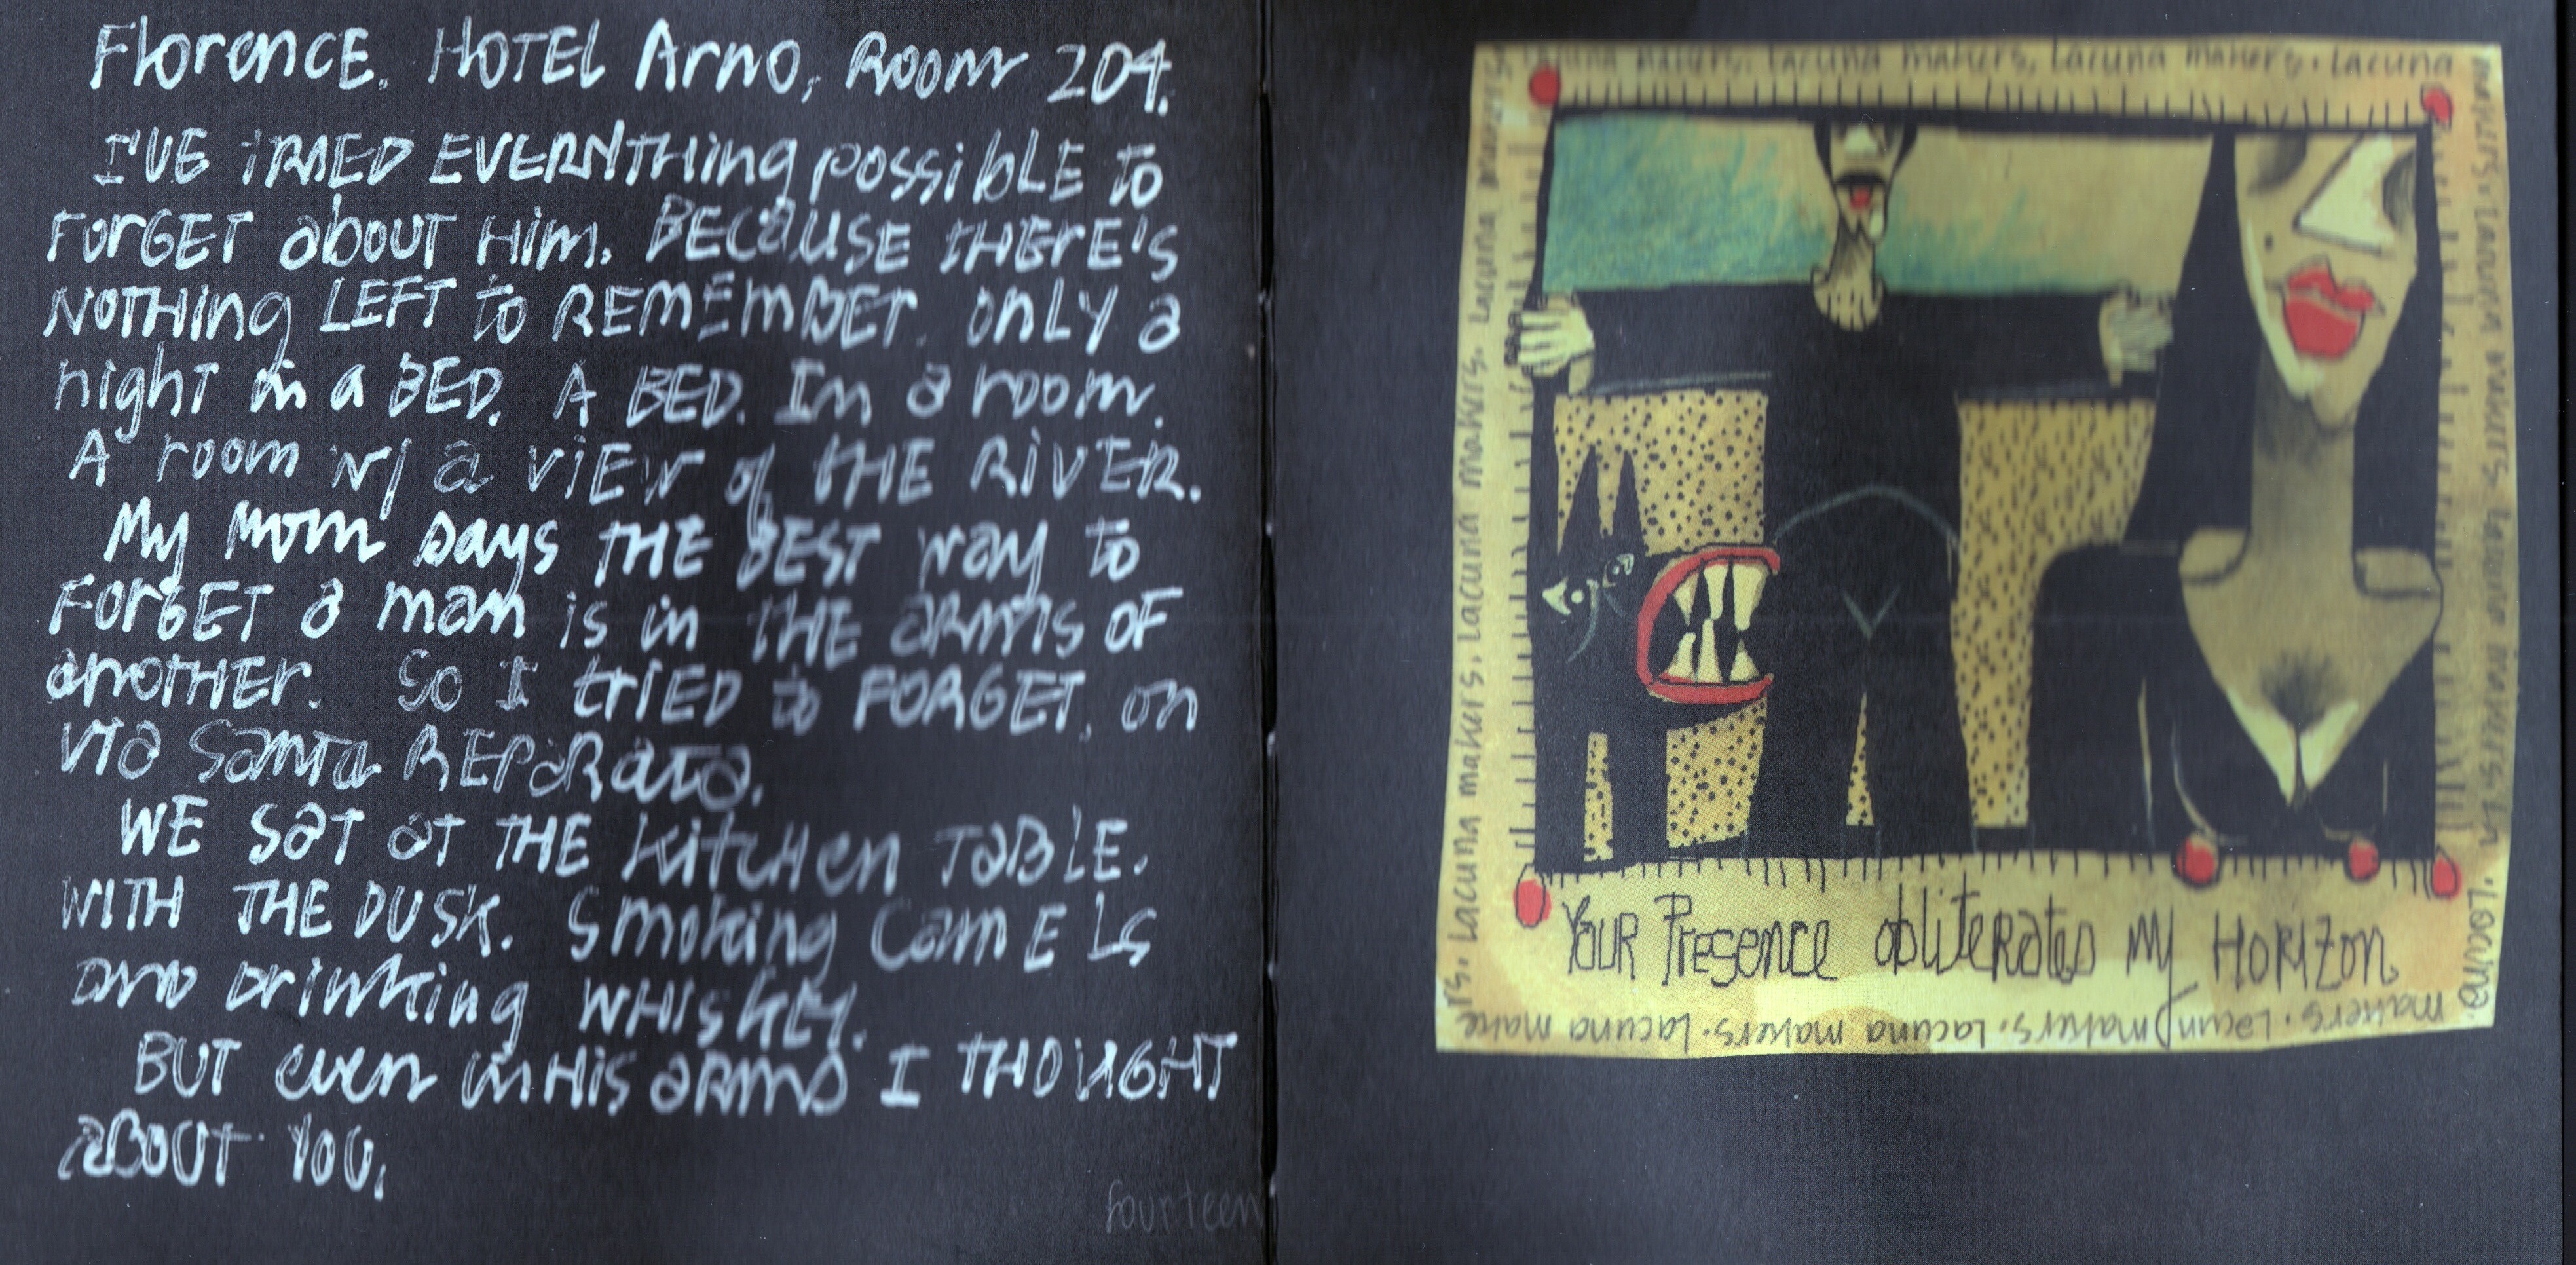 Florence, HOTEL Arno, Room 204.
I'VE TRIED EVERYTHing possible to
FORGET about Him. BECaUSE tHErE'S
NOTHing LEFT to REMEMBER. only a
night in a BED. A BED. In a room.
A room w/ a viEw of tHE RIVER.
My mom says THE BEST way to
FORGET a man is in THE arms OF
anOTHEr. So I triED to FORGET, on
via Santa REPaRata.
WE sat at THE KitCHen TaBLE.
WITH THE DUSK. Smoking CamELs
and Drinking WHISkEy.
BUT even in His arms I THOUGHT
aBOUT YOU.
fourteen
makers. Lacuna makers. Lacuna makers. Lacuna
YOUR Presence obliteRates My HORIZon
makers. Lacuna makers. Lacuna makers. Lacuna makers. Lacuna make
rs. Lacuna makers. Lacuna makers. Lacuna makers. Lacuna makers